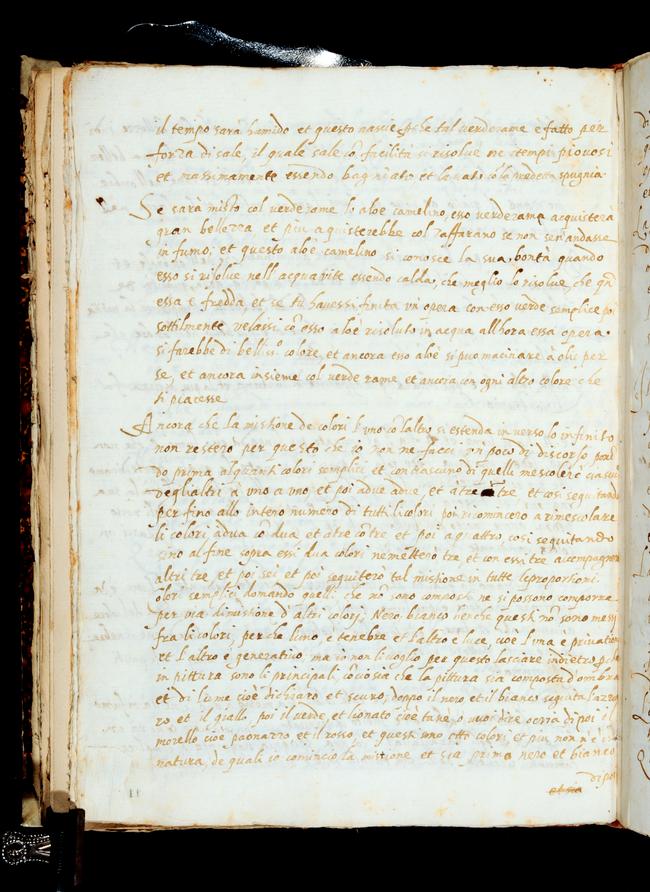 il tempo sara humido et questo nascie che tal verderame e fatto per
forza di sale, il quale sale cõ facilità si risolve ne tempi piovosi
et massimamente essendo bagniato et lavato cõ la predetta spugnia
Se sarà misto col verderame lo aloe camelino, esso verderame acquisterà
gran bellezza et piu aquisterebbe col zaffarano se non sen andasse
in fumo; et questo aloe camelino si conosce la sua bontà quando
esso si risolue nell acquavite essendo calda, che meglio lo risolue che qñ
essa e fredda, et se tu havessi finita un opera con esso verde semplice poi
sottilmente velassi cõ esso aloe risoluto in acqua allhora essa opera
si farebbe di bellissᵒ colore, et ancora esso aloe si puo macinare à olio per
se, et ancora insieme col verde rame et ancora con ogni altro colore che
ti piacesse
Ancora che la mistione de colori l'uno cõ l altro si estenda inverso lo infinito
non resterò per questo che io non ne facci un poco di discorso ponẽ
do prima alquanti colori semplici et con ciascuno di quelli mescolerò ciascũ
degli altri à uno a uno, et poi à due adue, et à tre à tre, et cosi seguitando
per fino allo intero numero di tutti li colori poi ricomincero à rimescolare
li colori à dua cõ dua et à tre cõ tre et poi à quattro, cosi seguitando
sino al fine sopra essi dua colori ne metterò tre et con essi tre accompagnero
altri tre, et poi sei et poi seguiterò tal mistione in tutte le proportioni.
olori semplici domando quelli che nõ sono composti ne si possono comporre
per via di mistione d altri colori; Nero bianco benche questi nõ sono messi
fra li colori, perche l uno è tenebre et l altro è luce, cioè l una è privatione
et l altro è generativo, ma io non li voglio per questo lasciare indietro, perche
in pittura sono li principali, cõ cio sia che la pittura sia composta d ombra
et di lume cioè di chiaro et scuro, doppo il nero et il bianco seguita l azzu
ro et il giallo poi il verde, et lionato cioè tane, o vuoi dire ocria di poi il
morello cioe paonazzo et il rosso, et questi sono otto colori, et piu non n è in
natura, de quali io comincio la mistione et sia primo nero et bianco
di poi
et sia